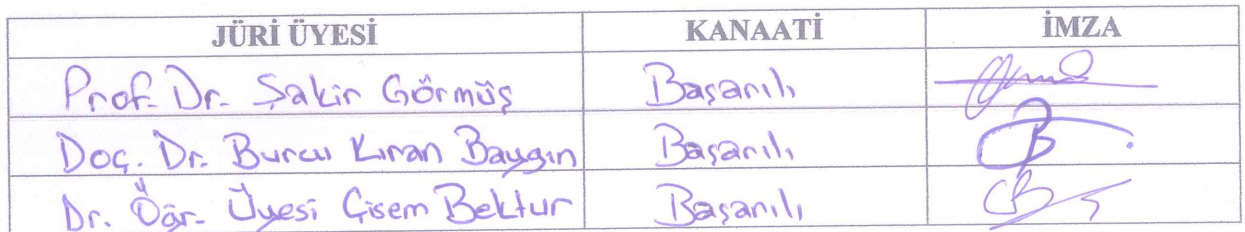 JÜRİ ÜYESİ KANAATİ İMZA
Prof. Dr. Şakir Görmüş Başarılı
Doç. Dr. Burcu Kıran Baygın Başarılı
Dr. Öğr. Üyesi Gisem Bektur Başarılı